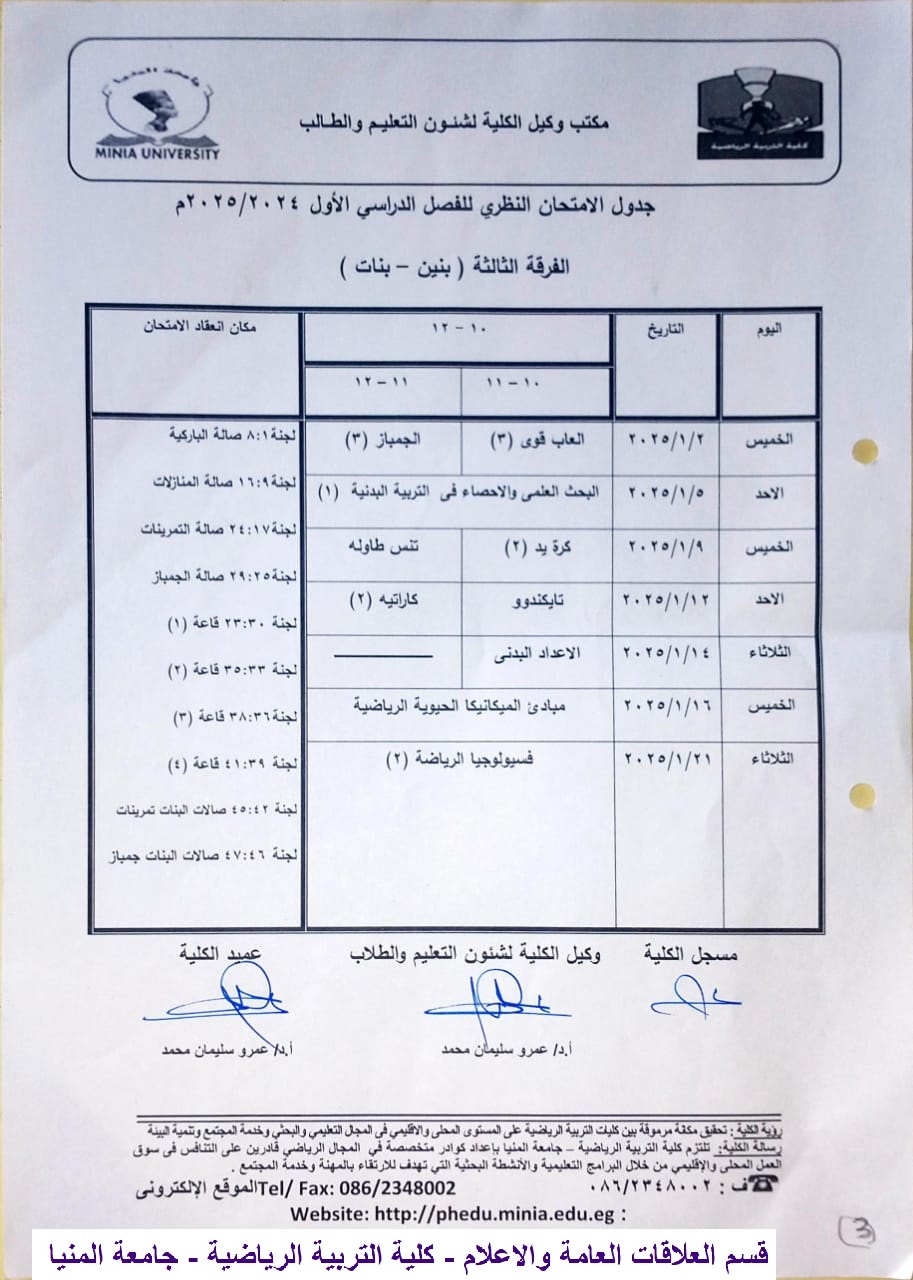 جامعة المنيا
MINIA UNIVERSITY
مكتب وكيل الكلية لشئون التعليم والطالب
كلية التربية الرياضية
جدول الامتحان النظري للفصل الدراسي الأول ٢٠٢٥/٢٠٢٤م
الفرقة الثالثة ( بنين – بنات )
اليوم التاريخ ١٠ – ١٢ مكان انعقاد الامتحان
١٠ – ١١ ١١ – ١٢
الخميس ٢٠٢٥/١/٢ العاب قوى (٣) الجمباز (٣)
الاحد ٢٠٢٥/١/٥ البحث العلمى والاحصاء فى التربية البدنية (١)
الخميس ٢٠٢٥/١/٩ كرة يد (٢) تنس طاوله
الاحد ٢٠٢٥/١/١٢ تايكندوو كاراتيه (٢)
الثلاثاء ٢٠٢٥/١/١٤ الاعداد البدنى ————
الخميس ٢٠٢٥/١/١٦ مبادئ الميكانيكا الحيوية الرياضية
الثلاثاء ٢٠٢٥/١/٢١ فسيولوجيا الرياضة (٢)
لجنة ٨:١ صالة الباركية
لجنة ١٦:٩ صالة المنازلات
لجنة ٢٤:١٧ صالة التمرينات
لجنة ٢٩:٢٥ صالة الجمباز
لجنة ٢٣:٣٠ قاعة (١)
لجنة ٣٥:٣٣ قاعة (٢)
لجنة ٣٨:٣٦ قاعة (٣)
لجنة ٤١:٣٩ قاعة (٤)
لجنة ٤٥:٤٢ صالات البنات تمرينات
لجنة ٤٧:٤٦ صالات البنات جمباز
مسجل الكلية وكيل الكلية لشئون التعليم والطلاب عميد الكلية
أ.د/ عمرو سليمان محمد أ.د/ عمرو سليمان محمد
رؤية الكلية : تحقيق مكانة مرموقة بين كليات التربية الرياضية على المستوى المحلى والاقليمي فى المجال التعليمي والبحثي وخدمة المجتمع وتنمية البيئة
رسالة الكلية: تلتزم كلية التربية الرياضية – جامعة المنيا بإعداد كوادر متخصصة في المجال الرياضي قادرين على التنافس فى سوق
العمل المحلى والإقليمي من خلال البرامج التعليمية والأنشطة البحثية التي تهدف للارتقاء بالمهنة وخدمة المجتمع .
☎ف : ٠٨٦/٢٣٤٨٠٠٢ Tel/ Fax: 086/2348002الموقع الإلكترونى
Website: http://phedu.minia.edu.eg :
3
قسم العلاقات العامة والاعلام - كلية التربية الرياضية - جامعة المنيا